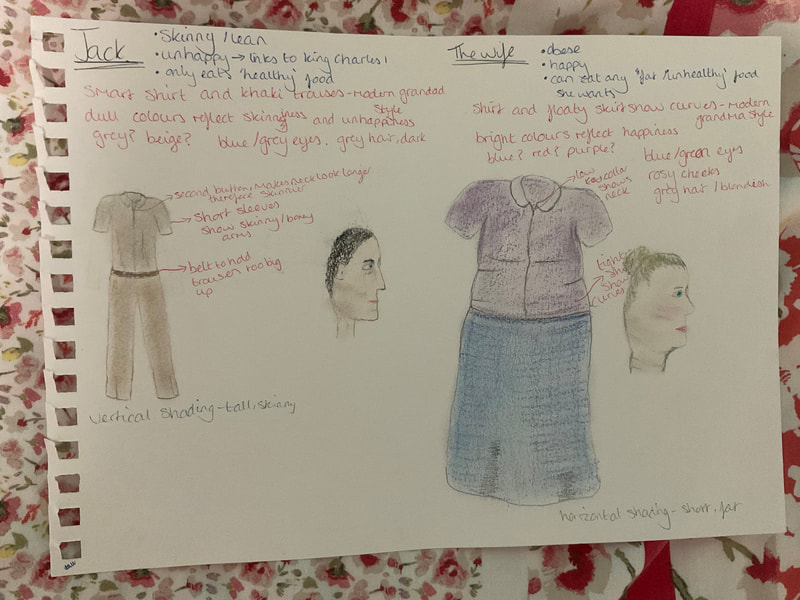 Jack
• Skinny / lean
• unhappy → links to king Charles 1
• only eats 'healthy' food
Smart shirt and khaki trouses - modern grandad
style
dull colours reflect skinniness and unhappiness
grey? beige? blue/grey eyes. grey hair, dark
→ second button, makes neck look longer
therefore skinnier
→ short sleeves
show skinny/boney
arms
→ belt to hold
trousers too big
up
vertical shading - tall, skinny
The wife
• obese
• happy
• can eat any 'fat /unhealthy' food
she wants
shirt and floaty skirt show curves - modern
grandma style
bright colours reflect happiness
blue? red? purple?
blue/green eyes
rosy cheeks
grey hair / blondish
low
collar
shows
neck
tight
show
curves
horizontal shading - short, fat